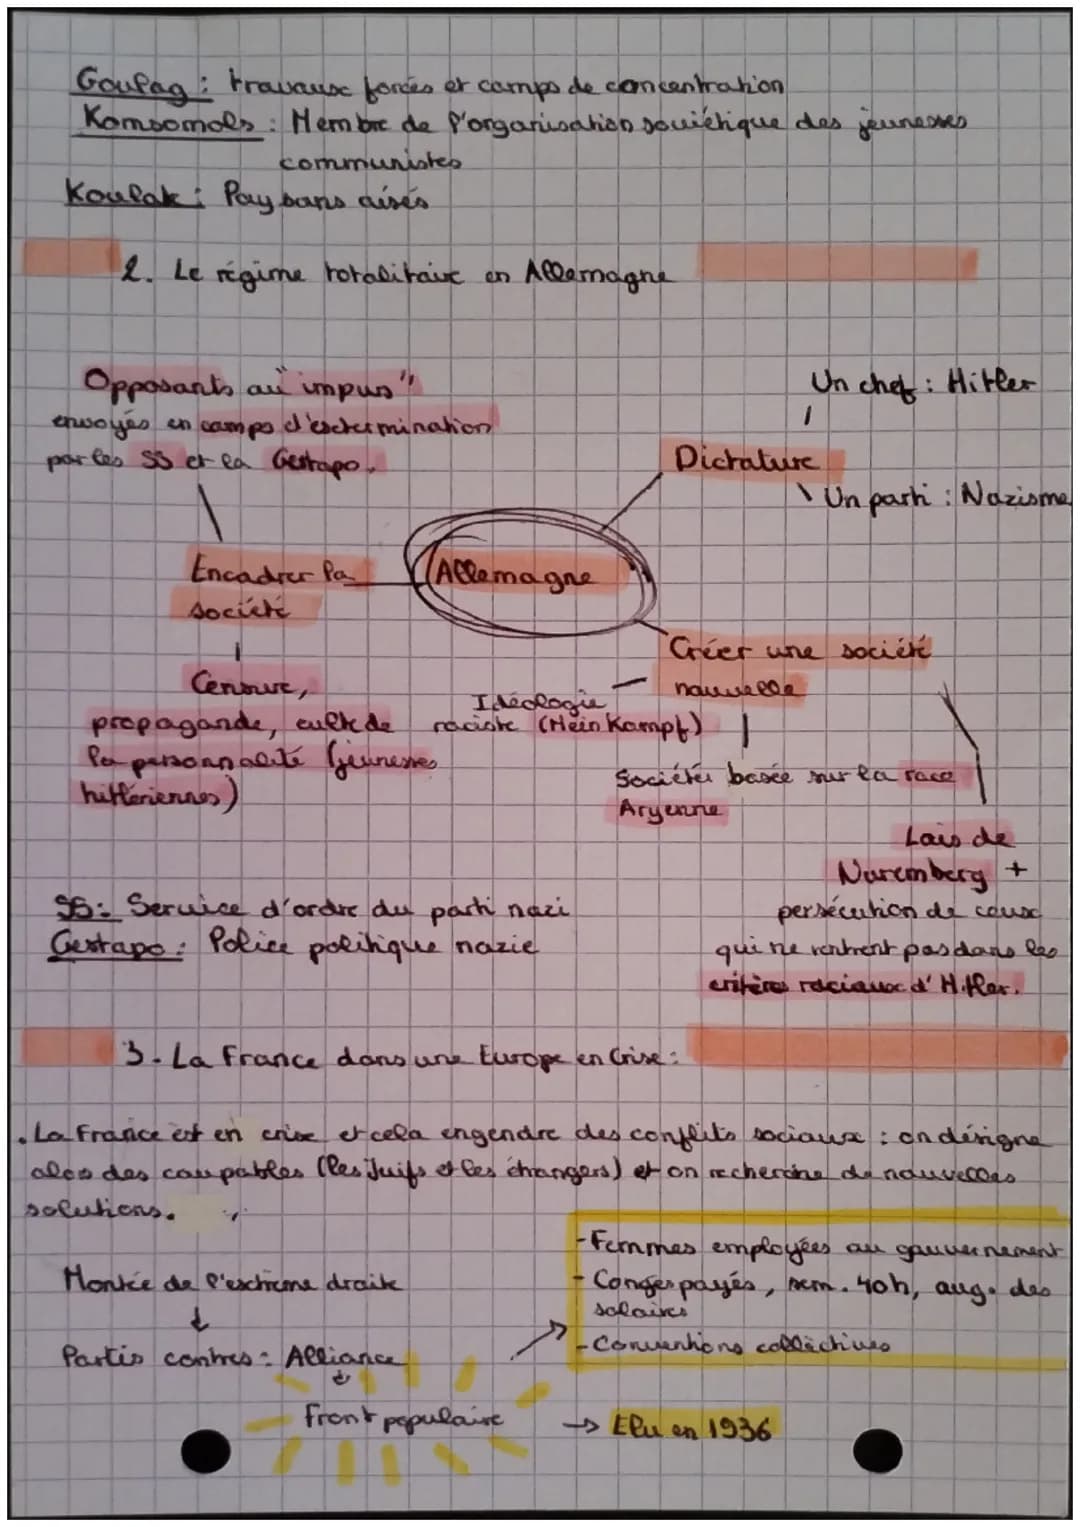 Goulag : travaux forcés et camps de concentration
Komsomols : Membre de l'organisation soviétique des jeunesses
communistes
Koulak : Paysans aisés
2. Le régime totalitaire en Allemagne
Opposants au "impurs"
envoyés en camps d'extermination
par les SS et la Gestapo.
Un chef : Hitler
Dictature
Un parti : Nazisme
Encadrer la
société
Allemagne
Créer une société
nouvelle
Censure,
propagande, culte de
la personnalité (jeunesses
hitlériennes)
Idéologie
raciste (Mein Kampf)
Société basée sur la race
Aryenne
Lois de
Nuremberg +
persécution de ceux
qui ne rentrent pas dans les
critères raciaux d'Hitler.
SS : Service d'ordre du parti nazi
Gestapo : Police politique nazie
3. La France dans une Europe en Crise :
. La France est en crise et cela engendre des conflits sociaux : on désigne
alos des coupables (les Juifs et les étrangers) et on recherche de nouvelles
solutions.
Montée de l'extrême droite
↓
Partis contres : Alliance
↓
Front populaire
→ Elu en 1936
- Femmes employées au gouvernement
- Conges payés, sem. 40h, aug. des
salaires
- Conventions collectives